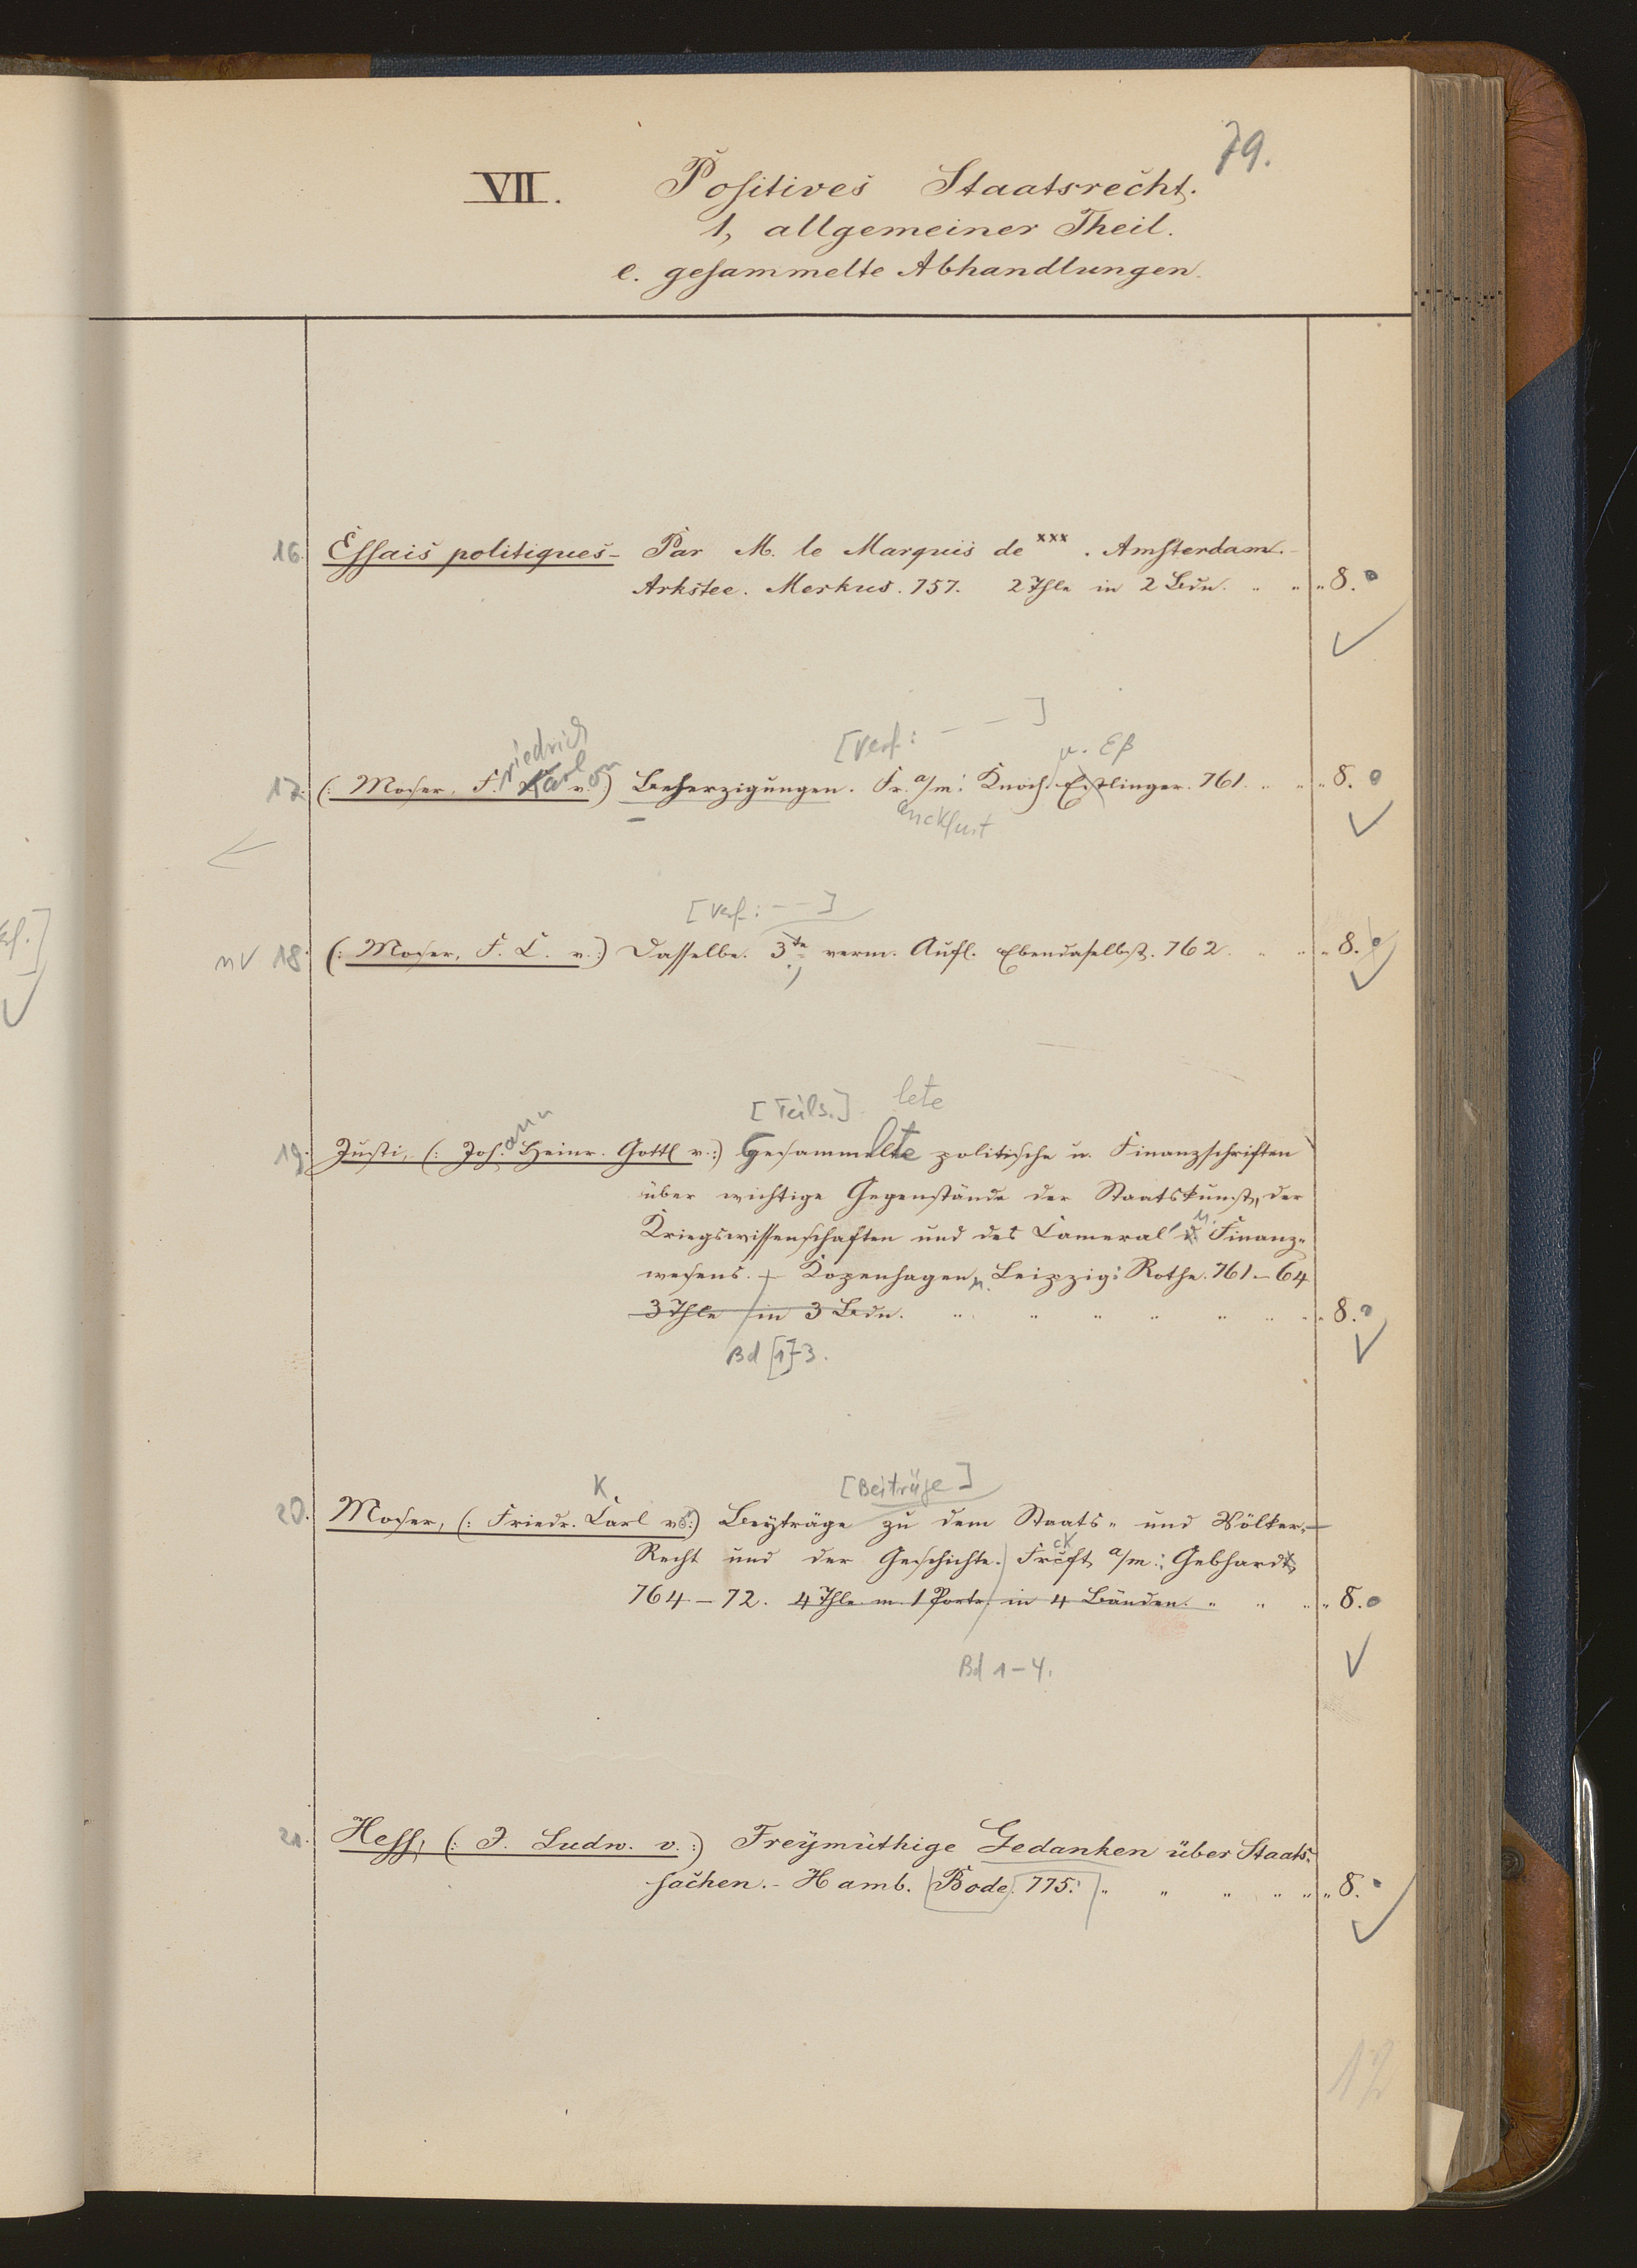 79.
VII. Positives Staatsrecht.
1, allgemeiner Theil.
e. gesammelte Abhandlungen.
16. Essais politiques - Par M. le Marquis de xxx. Amsterdam. -
Arkstee. Merkus. 757. 2 Thle in 2 Bdn. " " " 8.
[Verf: — — ]
riedrich
u. Eß
17. (: Moser, F. Karl v. :) Beherzigungen. Fr. a/m: Knoch. Esslinger. 761. " " 8.
on
anckfurt
[Verf: — — ]
nv 18. (: Moser, F. C. v. :) Dasselbe. 3te verm. Aufl. Ebendaselbst. 762. " " " 8.
[Teils.] lete
ann
19. Justi, (: Joh. Heinr. Gottl v. :) Gesammelte politische u. Finanzschriften
über wichtige Gegenstände der Staatskunst, der
Kriegswissenschaften und des Cameral u. Finanz-
wesens. + Kopenhagen u. Leipzig: Rothe. 761-64
3 Thle in 3 Bdn. " " " " " " " 8.
Bd [1]-3.
K. [Beiträge]
20. Moser, (: Friedr. Carl v. :) Beyträge zu dem Staats- und Völker-
ck
Recht und der Geschichte. Frcft a/m: Gebhardt
764-72. 4 Thle m 1 Portr. in 4 Bänden. " " " 8.
Bd 1-4.
21. Hess, (: J. Ludw. v. :) Freymüthige Gedanken über Staats-
sachen. - Hamb. Bode. 775. " " " " " " 8.